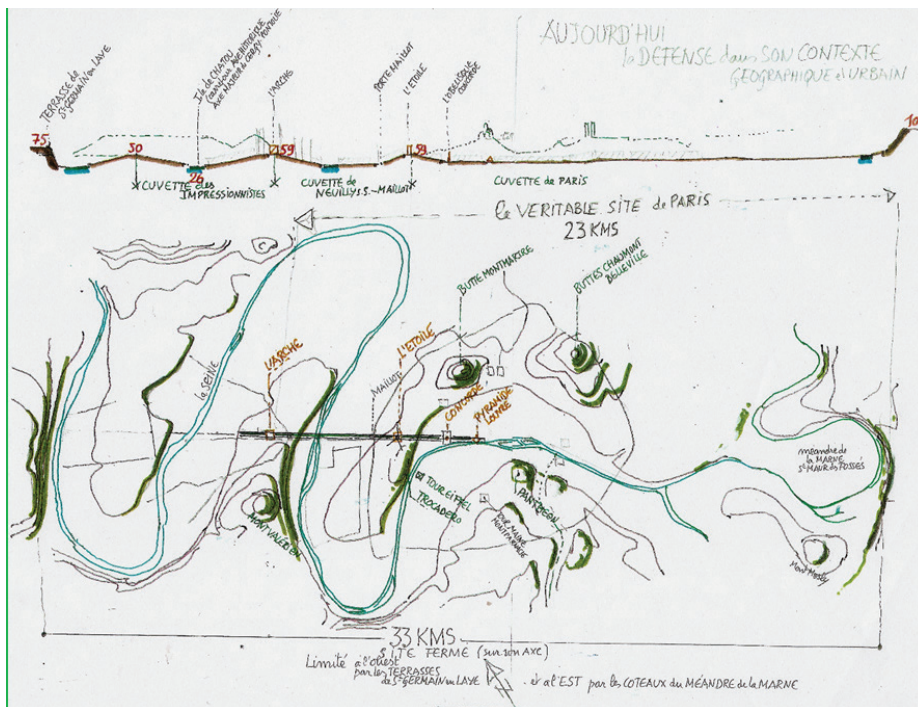 AUJOURD'HUI
la DEFENSE dans SON CONTEXTE
GEOGRAPHIQUE et URBAIN
TERRASSE de
St GERMAIN en LAYE
Ile de CHATOU
AXE MAJEUR de CERGY PONTOISE
L'ARCHE
PORTE MAILLOT
L'ETOILE
L'OBELISQUE
CONCORDE
75
50
26
59
59
CUVETTE des
IMPRESSIONNISTES
CUVETTE de
NEUILLY S.S - MAILLOT
CUVETTE de PARIS
le VERITABLE SITE de PARIS
23 KMS
BUTTE MONTMARTRE
BUTTES CHAUMONT
BELLEVILLE
la SEINE
L'ARCHE
MAILLOT
L'ETOILE
CONCORDE
PYRAMIDE
LOUVRE
MONT VALERIEN
TOUR EIFFEL
TROCADERO
PANTHEON
TOUR MAINE
MONTPARNASSE
méandre de
la MARNE
St MAUR des FOSSÉS
Mont Mesly
33 KMS
SITE FERME (sur son AXE)
Limité à l'ouest
par les TERRASSES
de St GERMAIN en LAYE
et à l'EST par les COTEAUX du MÉANDRE de la MARNE